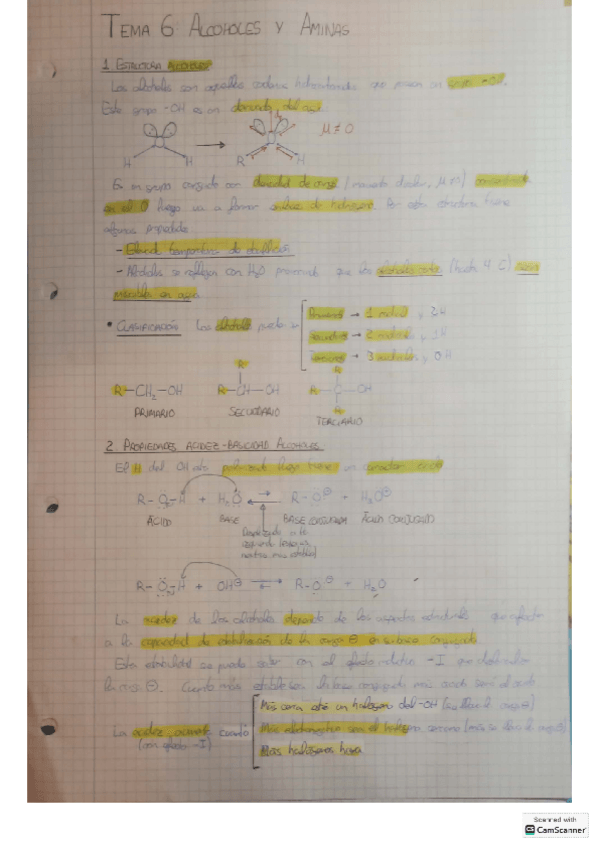 TEMA 6: ALCOHOLES Y AMINAS
1. ESTRUCTURA ALCOHOLES
Los alcoholes son aquellas cadenas hidrocarbonadas que poseen un grupo -OH.
Este grupo -OH es un derivado del agua
μ≠0
H H R H
Es un grupo cargado con densidad de carga (momento dipolar, μ≠0) concentrada
en el O luego va a formar enlaces de hidrógeno. Por esta tiene
algunas propiedades
- Elevada temperatura de ebullición
- Alcoholes se con H₂O provocando que los alcoholes cortos (hasta 4 C) sean
miscibles en agua
• CLASIFICACIÓN Los alcoholes pueden ser
Primarios → 1 radical y 2H
Secundarios → 2 radicales y 1H
Terciarios → 3 radicales y 0H
R-CH₂-OH
PRIMARIO
R
R-CH-OH
SECUNDARIO
R
R-C-OH
R
TERCIARIO
2. PROPIEDADES ACIDEZ-BASICIDAD ALCOHOLES
El H del OH está polarizado luego tiene un carácter ácido
R-O-H + H₂O ⇄ R-O⊖ + H₃O⊕
ÁCIDO BASE BASE CONJUGADA ÁCIDO CONJUGADO
Desplazado a la
izquierda
neutras más estables)
R-O-H + OH⊖ ⇄ R-O⊖ + H₂O
La acidez de los alcoholes depende de los aspectos estructurales que afectan
a la capacidad de estabilización de la carga ⊖ en su base conjugada.
Esta estabilidad se puede con el efecto inductivo -I que
la carga ⊖. Cuanto más estable sea la base conjugada más ácido será el ácido
La acidez aumenta cuando
(con efecto -I)
Más cerca esté un halógeno del -OH
Más electronegativo sea el halógeno
Más halógenos haya